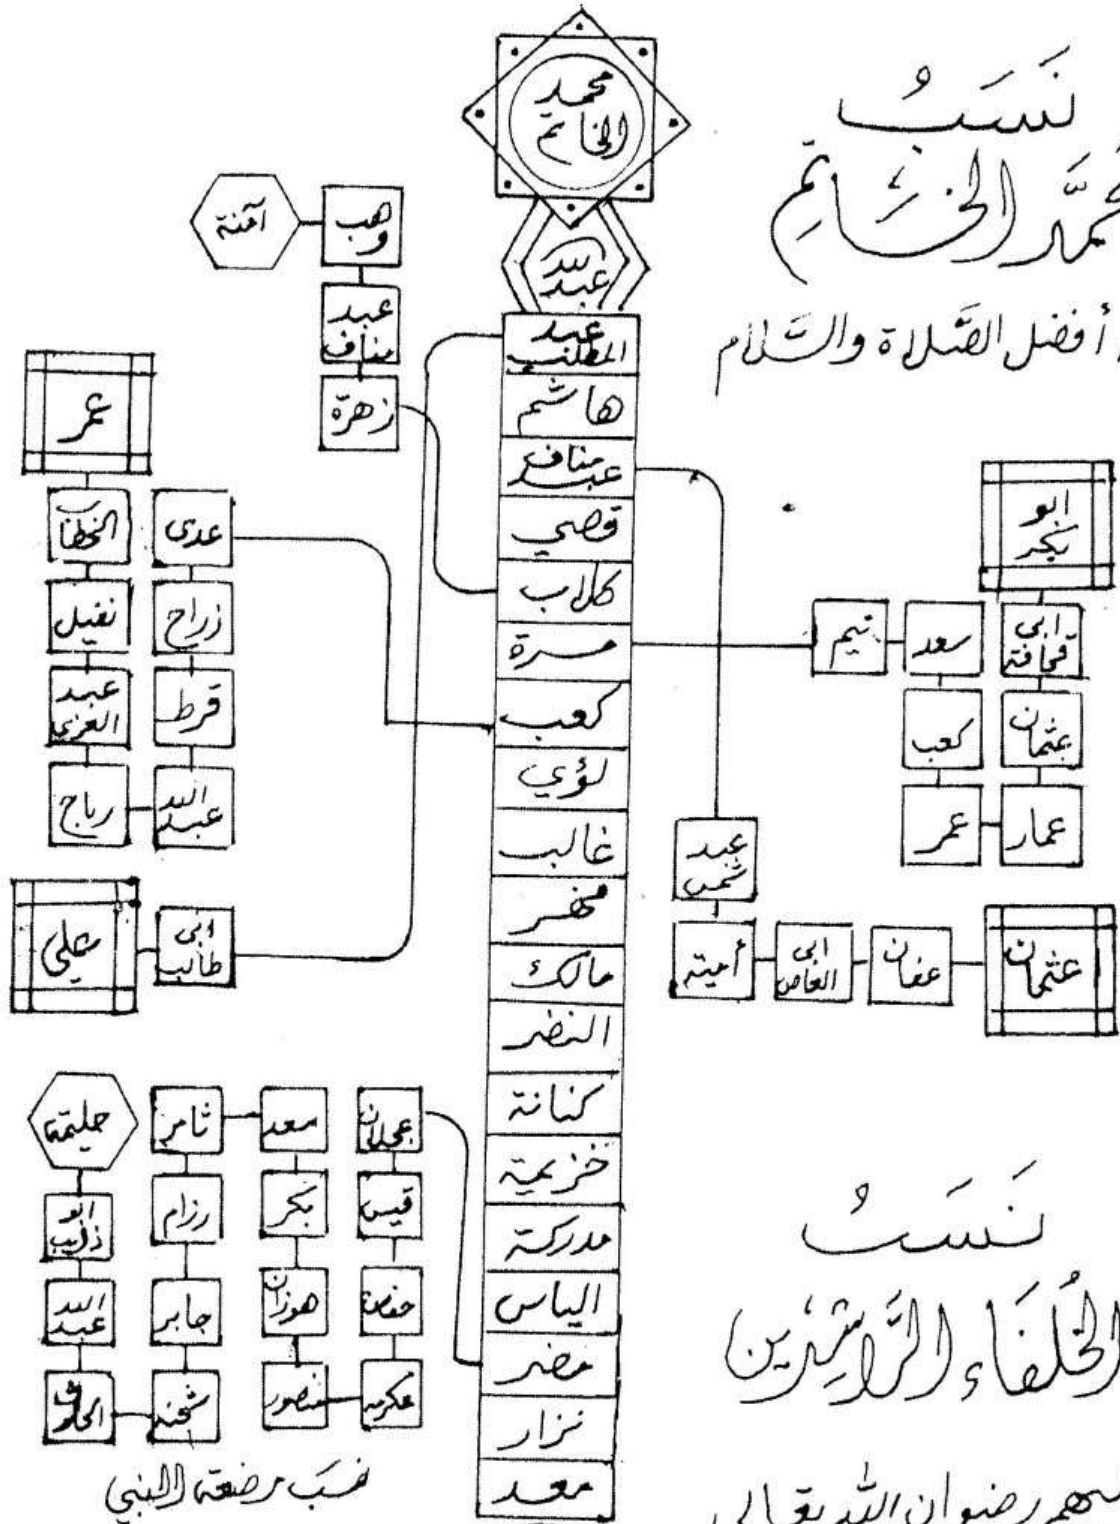 نَسَبُ
مُحَمَّد الخَاتِمِ
أفضل الصَّلاة والسَّلام
محمد
الخاتم
عبد الله
عبد
المطلب
هاشم
عبد مناف
قصي
كلاب
مرة
كعب
لؤي
غالب
فهر
مالك
النضر
كنانة
خزيمة
مدركة
الياس
مضر
نزار
معد
وهب
آمنة
عبد
مناف
زهرة
عمر
الخطاب
نفيل
عبد
العزى
رباح
عبد الله
قرط
زراح
عدى
ابى
طالب
علي
ابو
بكر
ابى
قحافة
عثمان
عمار
عمر
كعب
سعد
تيم
عبد
شمس
أمية
ابى
العاص
عفان
عثمان
حليمة
ابو
ذؤيب
عبد الله
شجنه
جابر
رزام
ثامر
سعد
بكر
هوزان
منصور
عكرمه
قيس
نسَب مرضعة النبي
نَسَبُ
الخُلَفَاء الرَّاشِدين
رضوان الله تعالى